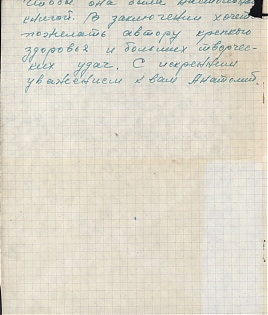 чтобы она была настольной
книгой. В заключении хочет
пожелать автору крепкого
здоровья и больших творчес-
ких удач. С искренним
уважением к вам Анатолий.